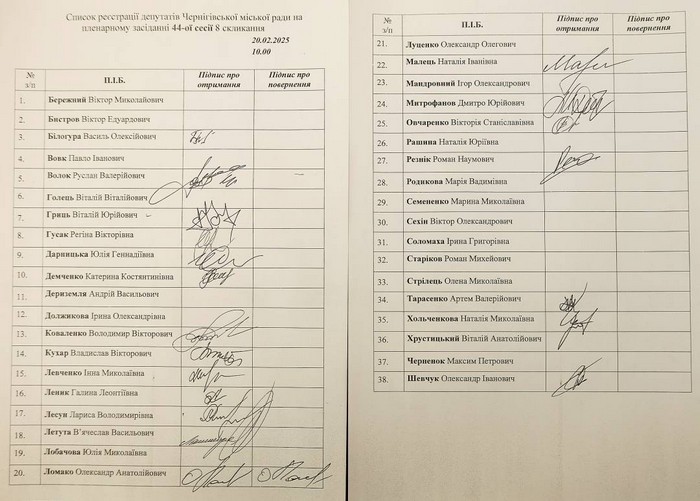 Список реєстрації депутатів Чернігівської міської ради на
пленарному засіданні 44-ої сесії 8 скликання
20.02.2025
10.00
№ з/п П.І.Б. Підпис про отримання Підпис про повернення
1. Бережний Віктор Миколайович
2. Бистров Віктор Едуардович
3. Білогура Василь Олексійович
4. Вовк Павло Іванович
5. Волок Руслан Валерійович
6. Голець Віталій Віталійович
7. Гриць Віталій Юрійович
8. Гусак Регіна Вікторівна
9. Дарницька Юлія Геннадіївна
10. Демченко Катерина Костянтинівна
11. Дериземля Андрій Васильович
12. Должикова Ірина Олександрівна
13. Коваленко Володимир Вікторович
14. Кухар Владислав Вікторович
15. Левченко Інна Миколаївна
16. Леник Галина Леонтіївна
17. Лесун Лариса Володимирівна
18. Летута В'ячеслав Васильович
19. Лобачова Юлія Миколаївна
20. Ломако Олександр Анатолійович
№ з/п П.І.Б. Підпис про отримання Підпис про повернення
21. Луценко Олександр Олегович
22. Малець Наталія Іванівна
23. Мандровний Ігор Олександрович
24. Митрофанов Дмитро Юрійович
25. Овчаренко Вікторія Станіславівна
26. Рашина Наталія Юріївна
27. Резнік Роман Наумович
28. Родикова Марія Вадимівна
29. Семененко Марина Миколаївна
30. Сехін Віктор Олександрович
31. Соломаха Ірина Григорівна
32. Старіков Роман Михейович
33. Стрілець Олена Миколаївна
34. Тарасенко Артем Валерійович
35. Хольченкова Наталія Миколаївна
36. Хрустицький Віталій Анатолійович
37. Черненок Максим Петрович
38. Шевчук Олександр Іванович